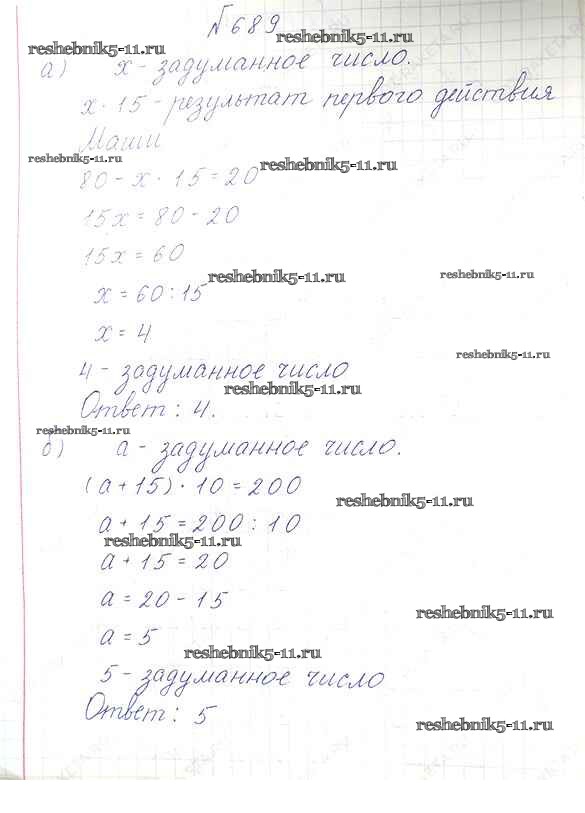 №689
reshebnik5-11.ru
reshebnik5-11.ru
а) х - задуманное число.
х · 15 - результат первого действия
Маши
reshebnik5-11.ru
reshebnik5-11.ru
80 - х · 15 = 20
15х = 80 - 20
15х = 60
reshebnik5-11.ru
reshebnik5-11.ru
х = 60 : 15
х = 4
reshebnik5-11.ru
4 - задуманное число
reshebnik5-11.ru
Ответ : 4.
reshebnik5-11.ru
б) а - задуманное число.
(а + 15) · 10 = 200
reshebnik5-11.ru
а + 15 = 200 : 10
reshebnik5-11.ru
а + 15 = 20
а = 20 - 15
reshebnik5-11.ru
а = 5
reshebnik5-11.ru
5 - задуманное число
Ответ : 5
reshebnik5-11.ru